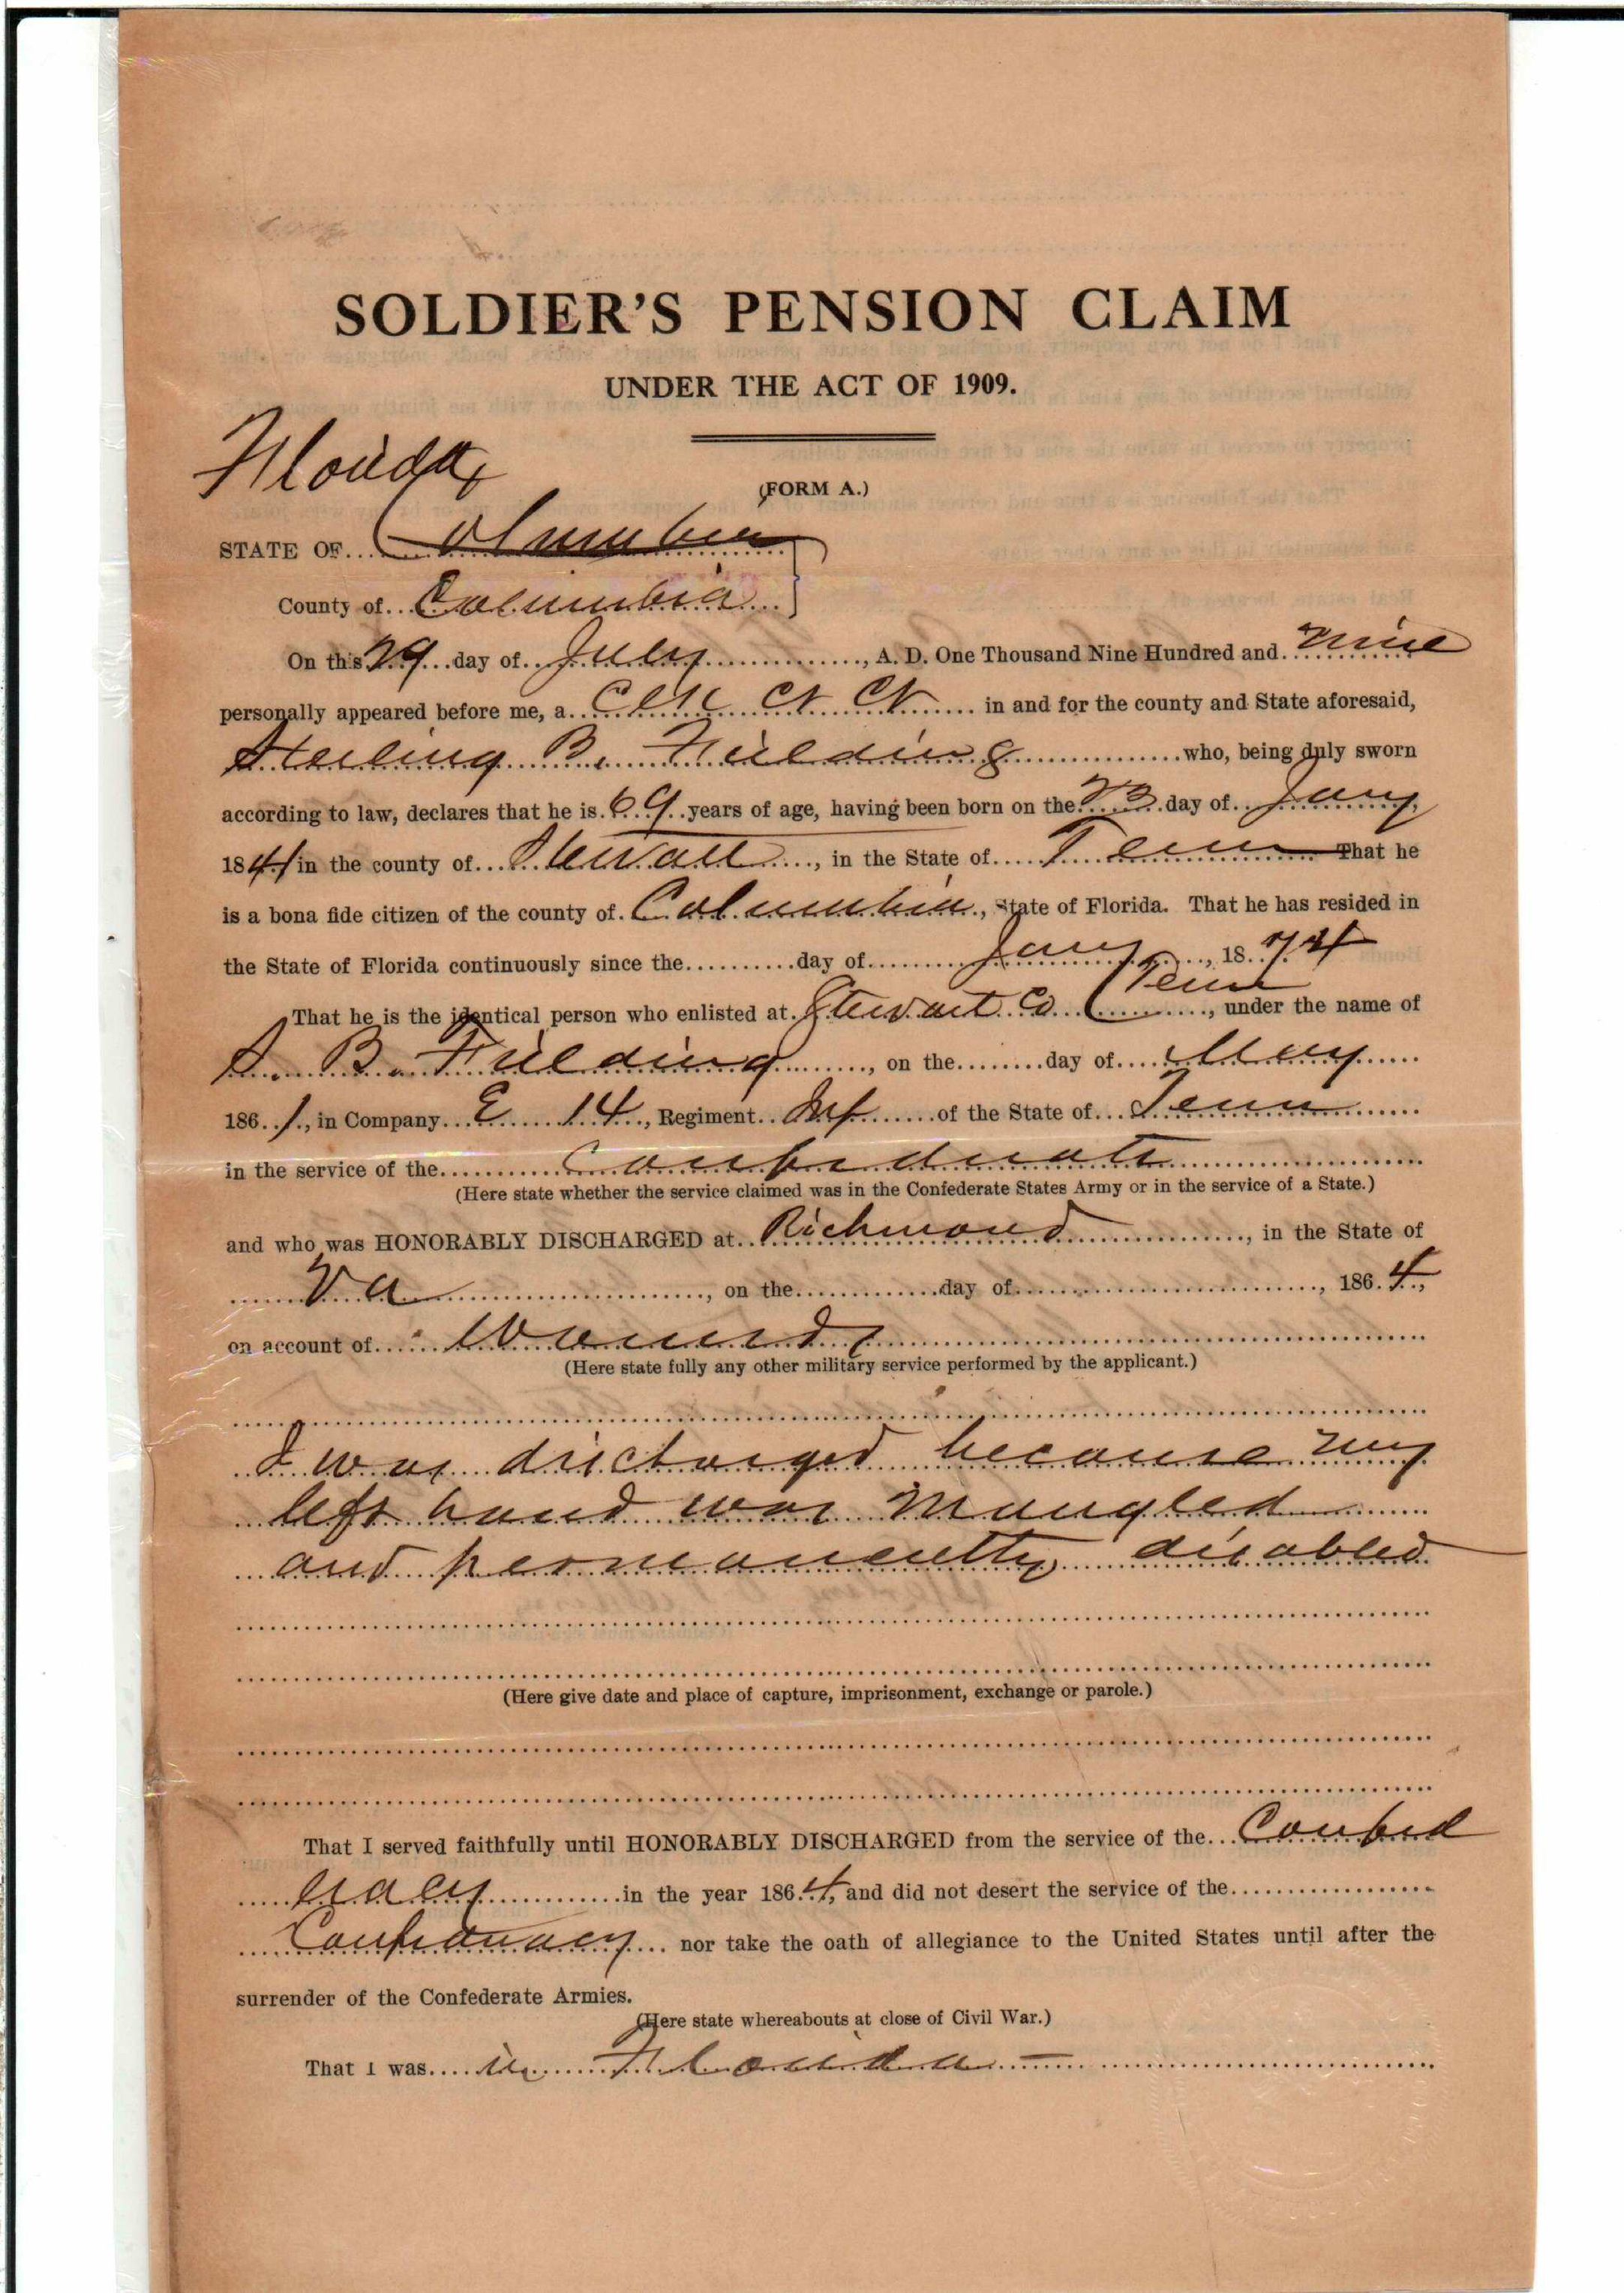 SOLDIER'S PENSION CLAIM
UNDER THE ACT OF 1909.
Florida
(FORM A.)
STATE OF Columbia
County of Columbia
On this 29 day of July, A. D. One Thousand Nine Hundred and nine
personally appeared before me, a Clk in and for the county and State aforesaid,
Sterling B. Fielding who, being duly sworn
according to law, declares that he is 69 years of age, having been born on the day of Jany,
1841 in the county of Stewart, in the State of Tenn That he
is a bona fide citizen of the county of Columbia, State of Florida. That he has resided in
the State of Florida continuously since the day of Jany, 1874
That he is the identical person who enlisted at Stewart Co Tenn, under the name of
S. B. Fielding, on the day of May
1861, in Company E 14, Regiment Inf of the State of Tenn
in the service of the Confederate
(Here state whether the service claimed was in the Confederate States Army or in the service of a State.)
and who was HONORABLY DISCHARGED at Richmond, in the State of
Va, on the day of, 1864,
on account of wounds
(Here state fully any other military service performed by the applicant.)
I was discharged because my
left hand was mangled
and permanently disabled
(Here give date and place of capture, imprisonment, exchange or parole.)
That I served faithfully until HONORABLY DISCHARGED from the service of the Confed
eracy in the year 1864, and did not desert the service of the
Confederacy nor take the oath of allegiance to the United States until after the
surrender of the Confederate Armies.
(Here state whereabouts at close of Civil War.)
That I was in Florida